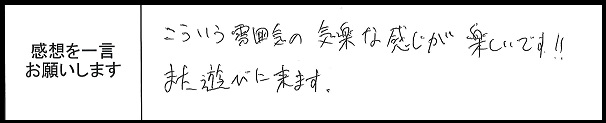 感想を一言
お願いします
こういう雰囲気の気楽な感じが楽しいです!!
また遊びに来ます.